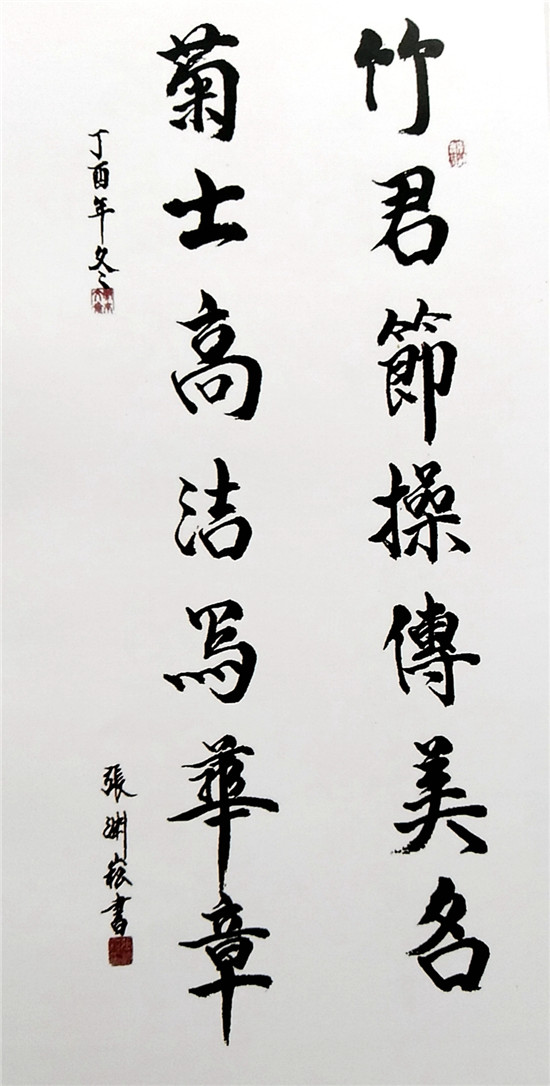 竹君節操傳美名
菊士高洁写華章
丁酉年冬
張渊崧書